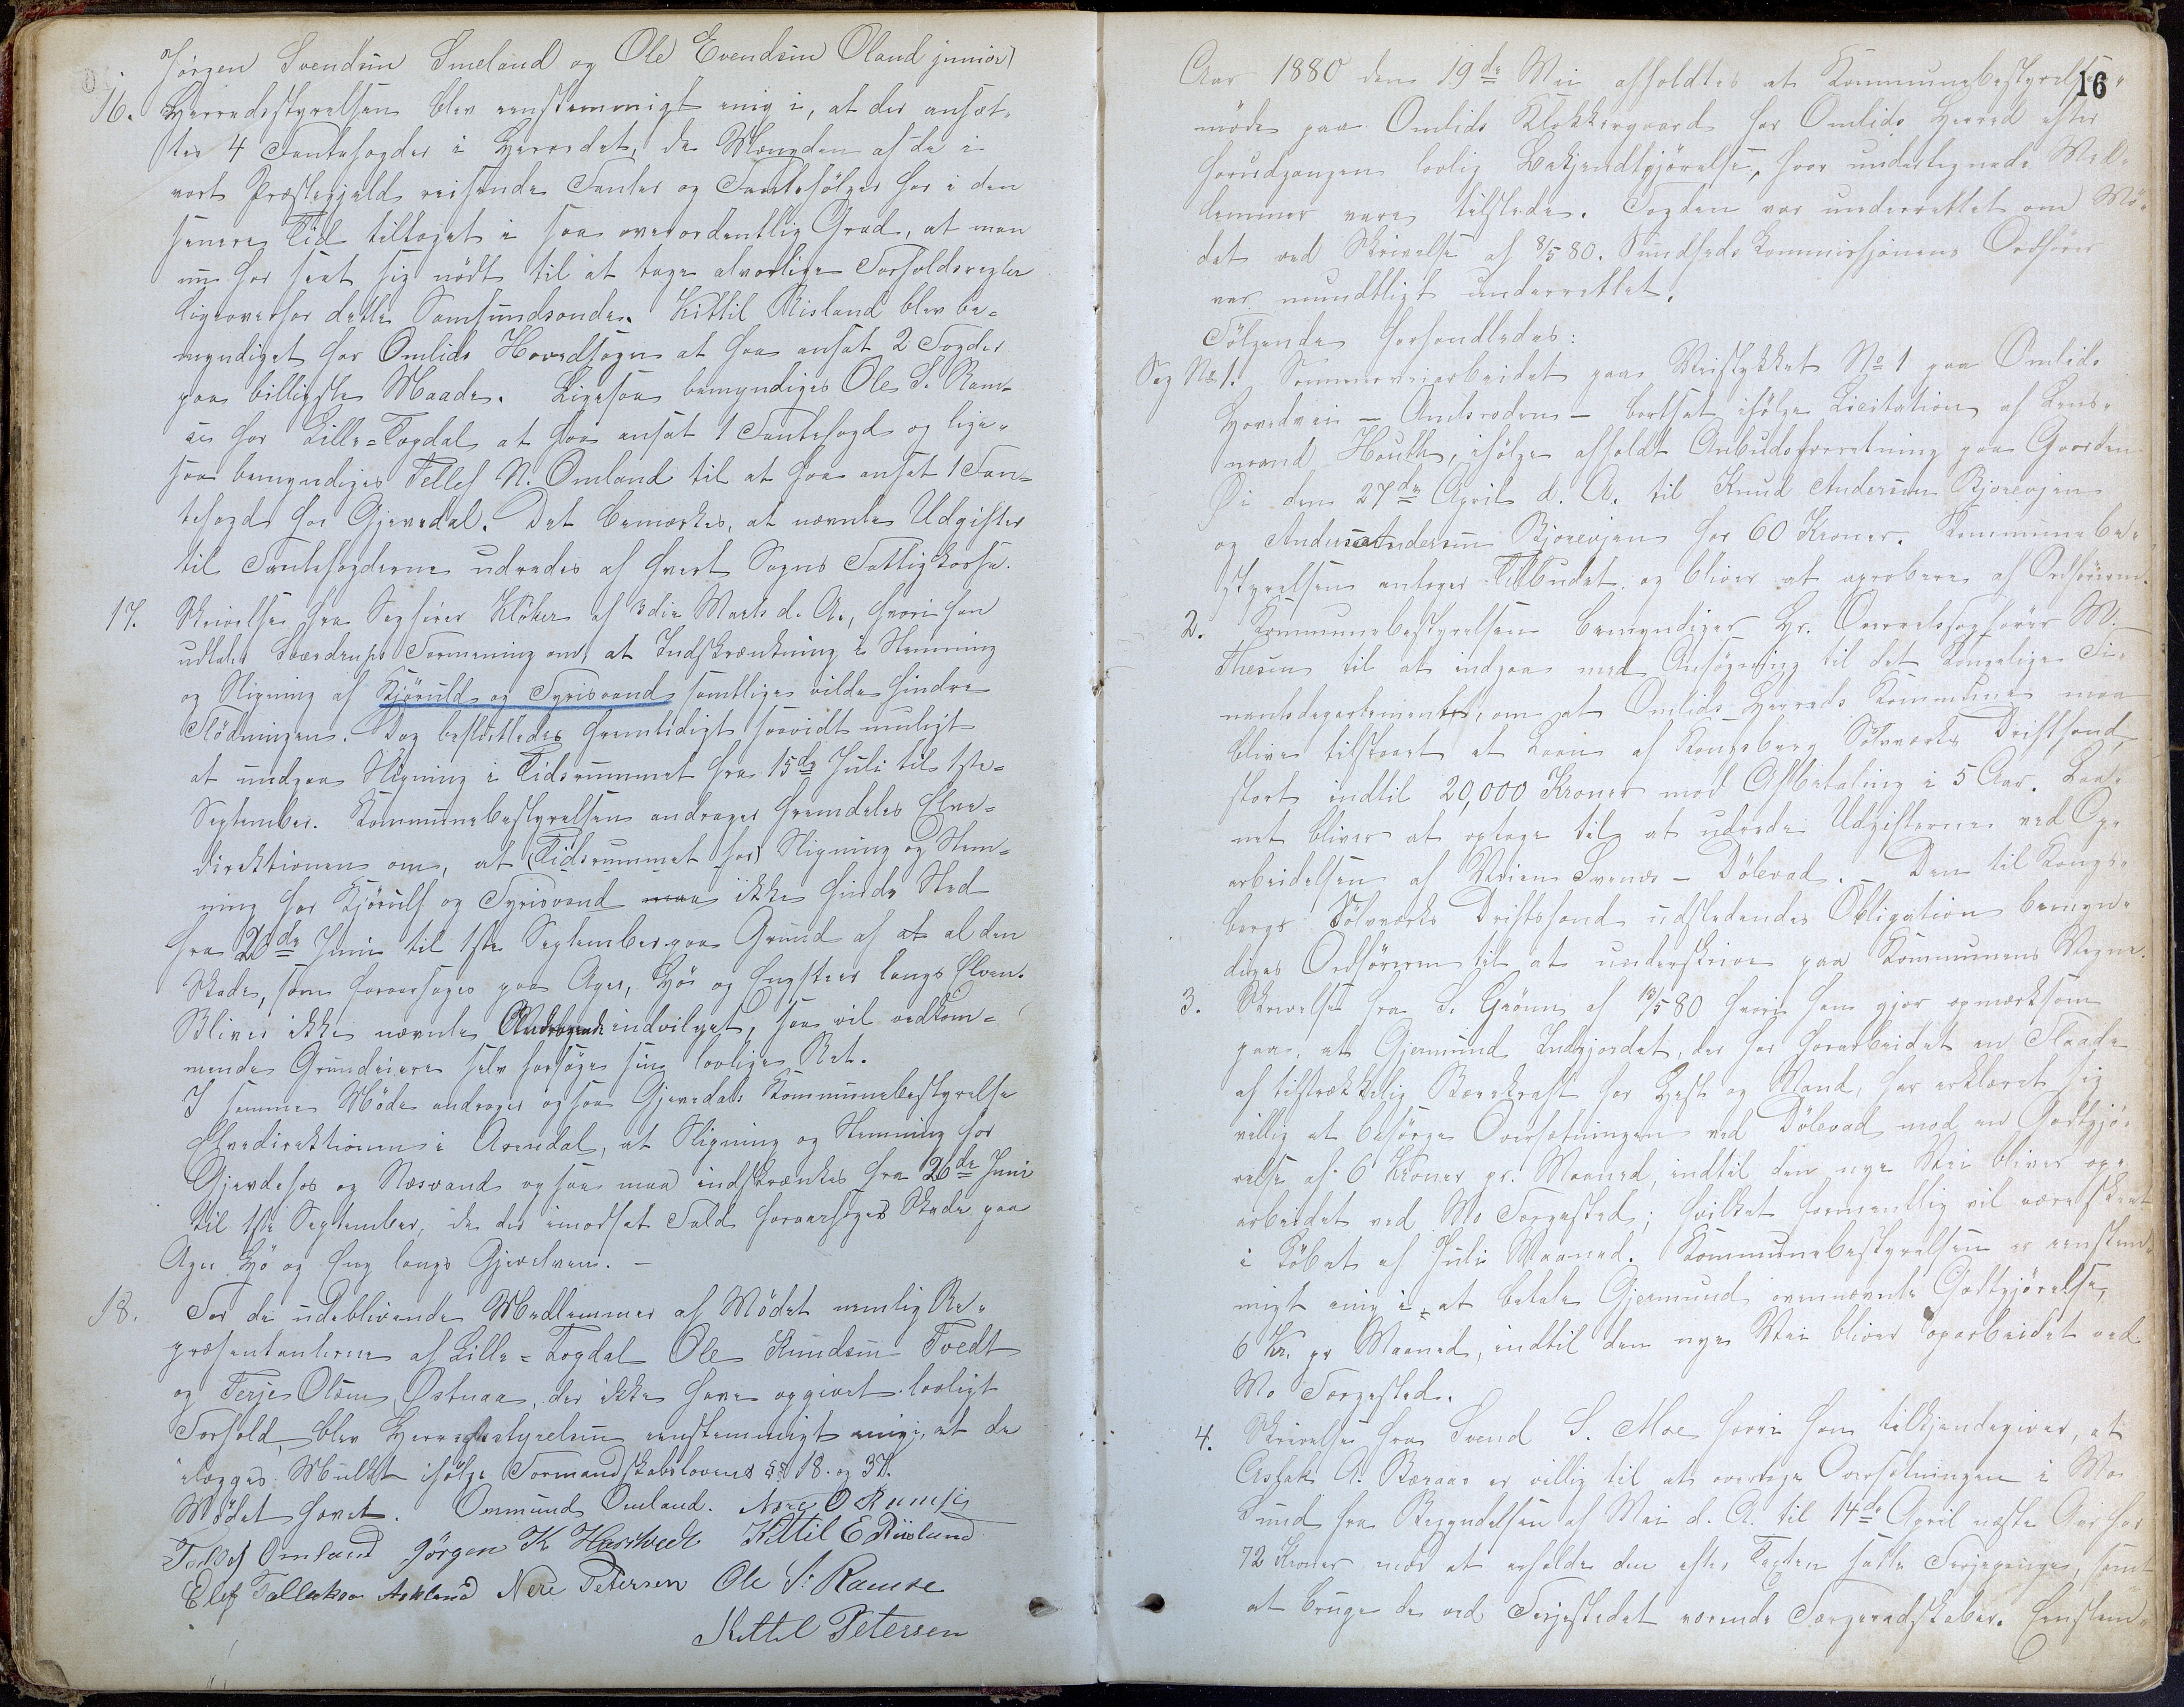 Jørgen Svendsen Smeland og Ole Evendsen Oland junior)
16. Herredsstyrelsen blev eenstemmigt enig i, at der ansæt-
tes 4 Fantefogder i Herredet, da Mængden af de i
vort Præstegjæld reisende Fanter og Fantefølger har i den
senere Tid tiltaget i saa overordentlig Grad, at man
nu har seet sig nødt til at tage alvorlige Forholdsregler
ligeoverfor dette Samfundsonde. Kittil Risland blev be-
myndiget for Omlids Hovedsogn at faa ansat 2 Fogder
paa billigste Maade. Ligesaa bemyndiges Ole S. Ram-
se for Lille-Topdal at faa ansat 1 Fantefogd og lige-
saa bemyndiges Tellef N. Omland til at faa ansat 1 Fan-
tefogd for Gjevedal. Det bemærkes, at nævnte Udgifter
til Fantefogderne udredes af hvert Sogns Fattigkasse.
17. Skrivelse fra Sagfører Klöker af 3die Marts d. A., hvori han
udtaler Sværdrups Formening om, at Indskrænkning i Stemning
og Stigning af Kjøruld og Tyrisvand samtlige vilde hindre
Flødningen. Dog besluttedes fremtidigt saavidt muligt
at undgaa Stigning i Tidsrummet fra 15de Juli til 1ste
September. Kommunebestyrelsen andrager fremdeles Elve-
direktionen om, at (Tidsrummet for) Stigning og Stem-
ning for Kjørull og Tyrisvand maa ikke finde Sted
fra 20de Juni til 1ste September paa Grund af at al den
Skade, som foraarsages paa Ager, Hø og Engsteer langs Elven.
Bliver ikke nævnte Andragende indvilget, saa vil vedkom-
mende Grundeiere selv forsøge sin lovlige Ret.
I samme Møde andrager ogsaa Gjevedals Kommunebestyrelse
Elvedirektionen i Arendal, at Stigning og Stemning for
Gjevdehos og Næsvand ogsaa maa indskrænkes fra 26de Juni
til 1ste September, da der imodsat Fald foraarsages Skade paa
Ager Hø og Eng langs Gjevelven. —
18. For de udeblivende Medlemmer af Mødet nemlig Re-
præsentanterne af Lille-Topdal Ole Knudsen Tvedt
og Terje Olsen Østnaa, der ikke have opgivet lovligt
Forfald, blev Herredsstyrelsen eenstemmigt enig i, at de
ilægges Mulkt ifølge Formandskabslovens §§ 18. og 37.
Mødet hævet. Ommund Omland. Nere O Ramse
Tellef Omland Jörgen K Hartvedt Kittil E Riisland
Elef Tallaksen Askland Nere Petersen Ole S. Ramse
Kittil Petersen
16
Aar 1880 den 19de Mai afholdtes et Kommunebestyrelses-
møde paa Omlids Klokkergaard for Omlids Herred efter
forudgangen lovlig Bekjendtgjørelse, hvor undertegnede Med-
lemmer vare tilstede. Fogden var underrettet om Mø-
det ved Skrivelse af 8/5 80. Sundheds Kommissjonens Ordfører
var mundtligt underrettet.
Følgende forhandledes:
Sag No 1. Sommerveiarbeidet paa Veistykket No 1 paa Omlids
Hovedvei – Amtsroden – bortsat ifølge Licitation af Lens-
mand Houth, ifølge afholdt Anbudsforretning paa Gaarden
Øi den 27de April d. A. til Knud Andersen Bjorevjen
og Anders Andersen Bjorevjen for 60 Kroner. Kommunebe-
styrelsen antager Tilbudet og bliver at aprobere af Ordføreren.
2. Kommunebestyrelsen bemyndiger Hr. Overretssagfører M.
Thesen til at indgaa med Ansøgning til det kongelige Fi-
nantsdepartement, om at Omlids Herreds Kommune maa
blive tilstaaet et Laan af Kongsberg Sølvværks Driftsfond,
stort indtil 20,000 Kroner mod Afbetaling i 5 Aar. Laa-
net bliver at optage til at udrede Udgifterne ved Op-
arbeidelsen af Veien Svenæs – Dölevad. – Den til Kongs-
bergs Sølvværks Driftsfond udstedendes Obligation bemyn-
diges Ordføreren til at underskrive paa Kommunens Vegne.
3. Skrivelse fra S. Grönn af 13/5 80 hvori han gjør opmærksom
paa, at Gjermund Indgjordet, der har forarbeidet en Flaade
af tilstrækkelig Bærekraft for Hest og Mand, har erklæret sig
villig at besørge Oversætningen ved Dölevad mod en Godtgjø-
relse af 6 Kroner pr. Maaned, indtil den nye Vei bliver op-
arbeidet ved Mo Færgested; hvilket formentlig vil være skeet
i Løbet af Juli Maaned. Kommunebestyrelsen er eenstem-
migt enig i, at betale Gjermund ovennævnte Godtgjørelse,
6 Kr. pr Maaned, indtil den nye Vei bliver oparbeidet ved
Mo Færgested.
4. Skrivelse fra Svend S. Moe hvori han tilkjendegiver, at
Aslak A. Beraas er villig til at overtage Oversætningen i Mo
Sund fra Begyndelsen af Mai d. A. til 14de April næste Aar for
72 Kroner mod at erholde den efter Taxten satte Færjepenge, samt
at bruge de ved Færjestedet værende Færgeredskaber. Eenstem-